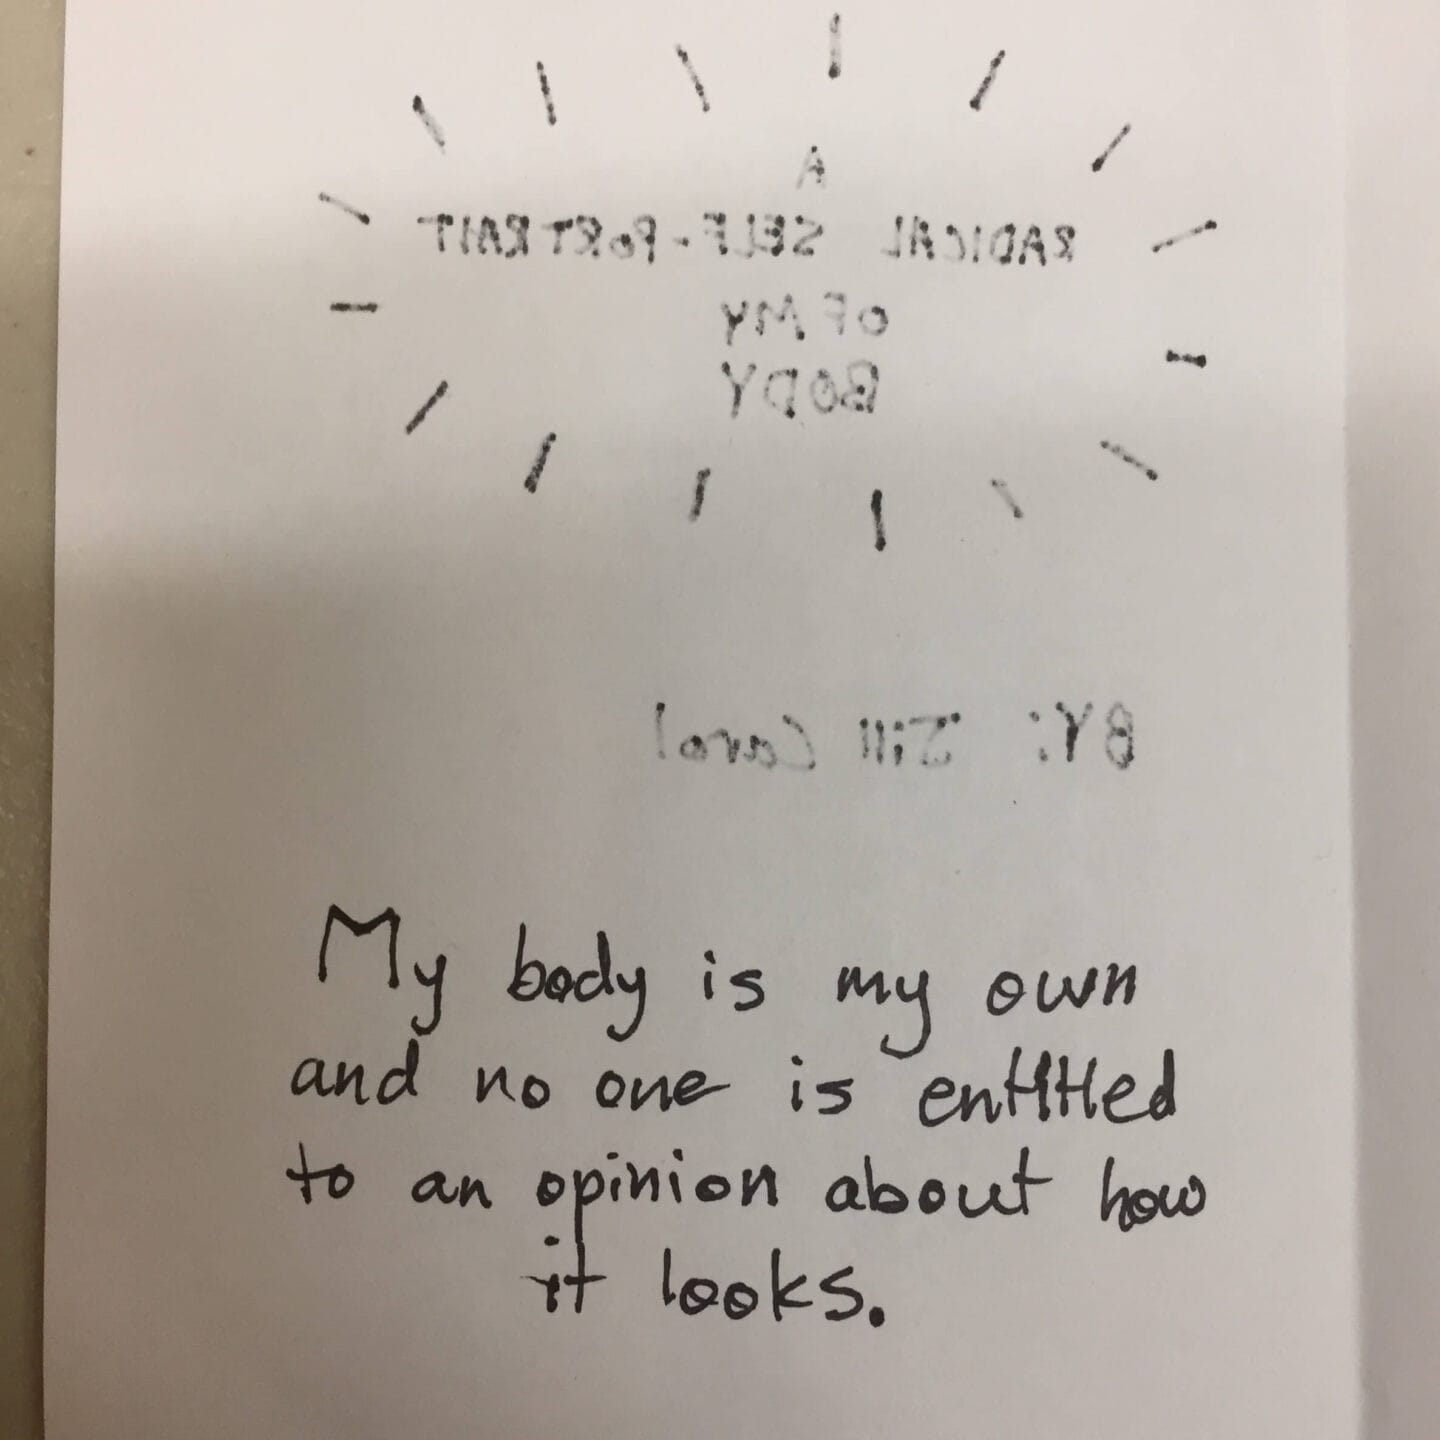 A
RADICAL SELF-PORTRAIT
OF MY
BODY
BY: Jill Carol
My body is my own
and no one is entitled
to an opinion about how
it looks.